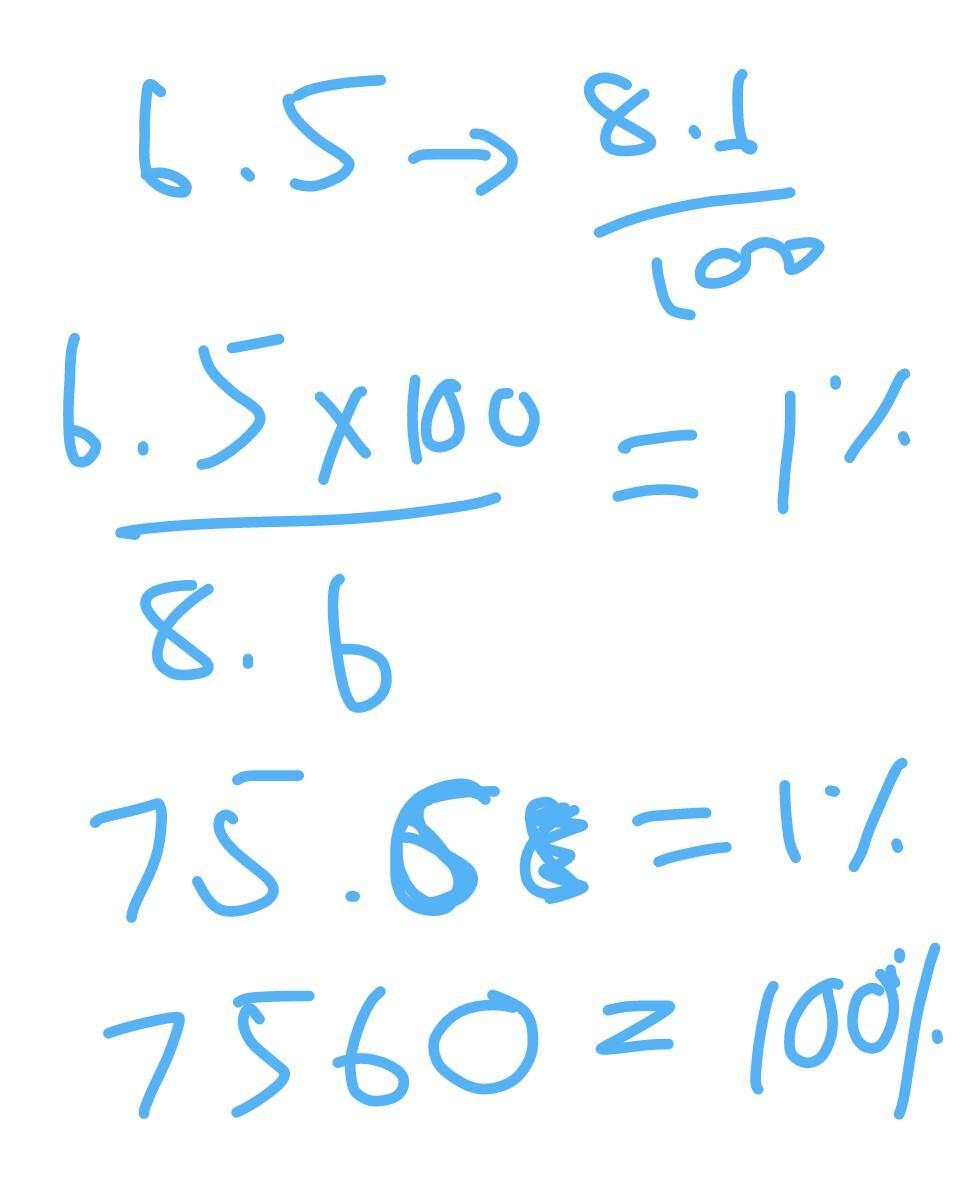 6.5 → 8.1
100
6.5 x 100 = 1%
8.6
75.6 = 1%
7560 = 100%